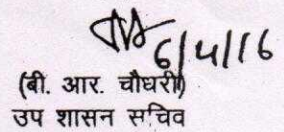 6/4/16
(बी. आर. चौधरी)
उप शासन सचिव